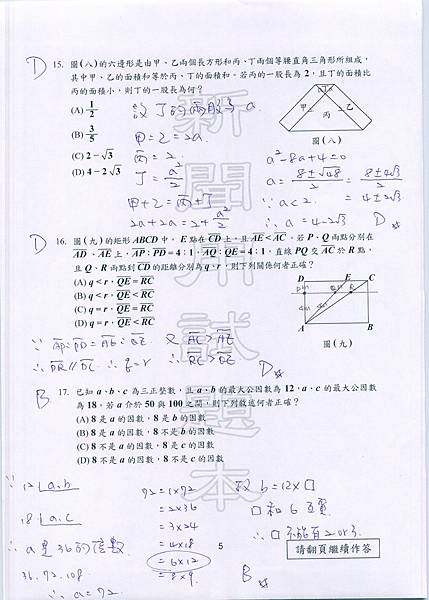 D 15. 圖(八)的六邊形是由甲、乙兩個長方形和丙、丁兩個等腰直角三角形所組成，
其中甲、乙的面積和等於丙、丁的面積和。若丙的一股長為 2，且丁的面積比
丙的面積小，則丁的一股長為何？
(A) 1/2
(B) 3/5
(C) 2 − √3
(D) 4 − 2√3
設丁的兩股為 a
甲 = 乙 = 2a
丙 = 2
丁 = a²/2
甲 + 乙 = 丙 + 丁
2a + 2a = 2 + a²/2
丁
甲 乙
丙
圖(八)
a² − 8a + 4 = 0
a = (8 ± √48)/2 = (8 ± 4√3)/2
∵ a < 2 = 4 ± 2√3
∴ a = 4 − 2√3
D
D 16. 圖(九)的矩形 ABCD 中，E 點在 CD 上，且 AE < AC。若 P、Q 兩點分別在
AD、AE 上，AP：PD = 4：1，AQ：QE = 4：1，直線 PQ 交 AC 於 R 點，
且 Q、R 兩點到 CD 的距離分別為 q、r，則下列關係何者正確？
(A) q < r，QE = RC
(B) q < r，QE < RC
(C) q = r，QE = RC
(D) q = r，QE < RC
D E C
A B
圖(九)
∵ AP:PD = AE:QE
∴ PR // DC ∴ q = r
又 AC > AE
∴ RC > QE
D
B 17. 已知 a、b、c 為三正整數，且 a、b 的最大公因數為 12，a、c 的最大公因數
為 18。若 a 介於 50 與 100 之間，則下列敘述何者正確？
(A) 8 是 a 的因數，8 是 b 的因數
(B) 8 是 a 的因數，8 不是 b 的因數
(C) 8 不是 a 的因數，8 是 c 的因數
(D) 8 不是 a 的因數，8 不是 c 的因數
∵ 12 | a, b
18 | a, c
∴ a 是 36 的倍數
36, 72, 108
∴ a = 72
72 = 1×72
= 2×36
= 3×24
= 4×18
= 6×12
= 8×9
設 b = 12×□
□ 和 6 互質
∴ □ 不能有 2 or 3
B
5
請翻頁繼續作答
新聞用試題本